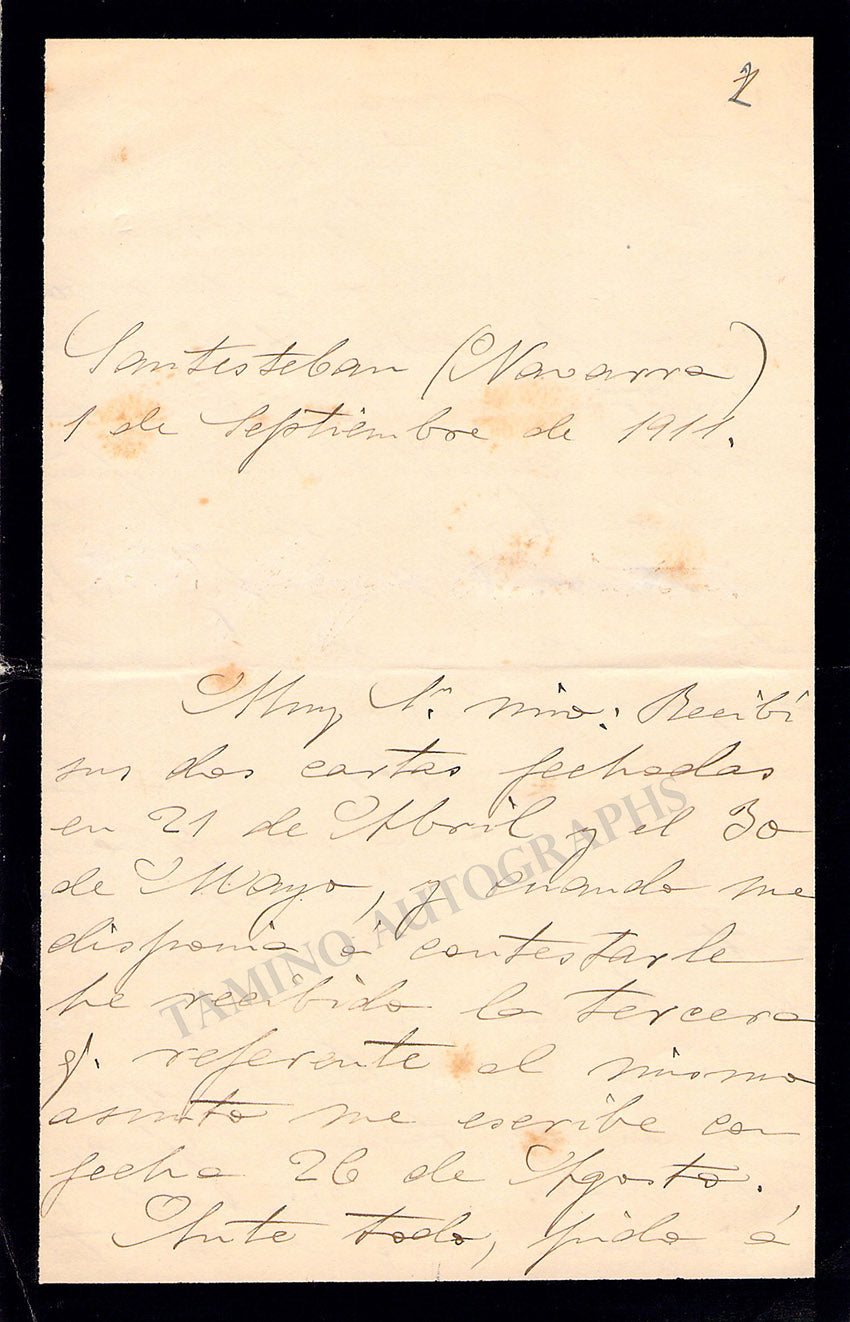 1
Santesteban (Navarra)
1 de Septiembre de 1911.
Muy Sr. mio: Recibí
sus dos cartas fechadas
en 21 de Abril y el 30
de Mayo, y cuando me
disponia á contestarle
he recibido la tercera
q. referente al mismo
asunto me escribe con
fecha 26 de Agosto.
Ante todo, pido á
TAMINO AUTOGRAPHS